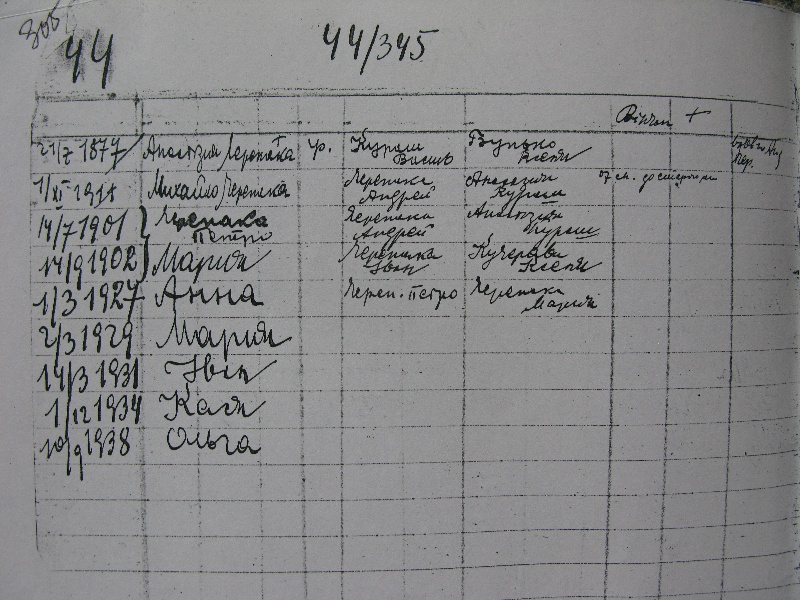 305
44
44/345
Вінчан +
21/7 1877 Анастазия Черепака гр. Кураш Василь Вунько Ксеня
1/XI 1911 Михайло Черепака Черепака Андрей Анастазия Кураш
14/7 1901 Черепака Петро Черепака Андрей Анастазия Кураш
14/9 1902 Мария Черепака Іван Кучерява Ксеня
1/3 1927 Анна Череп. Петро Черепака Мария
2/3 1929 Мария
14/3 1931 Іван
1/12 1934 Кася
10/9 1938 Ольга